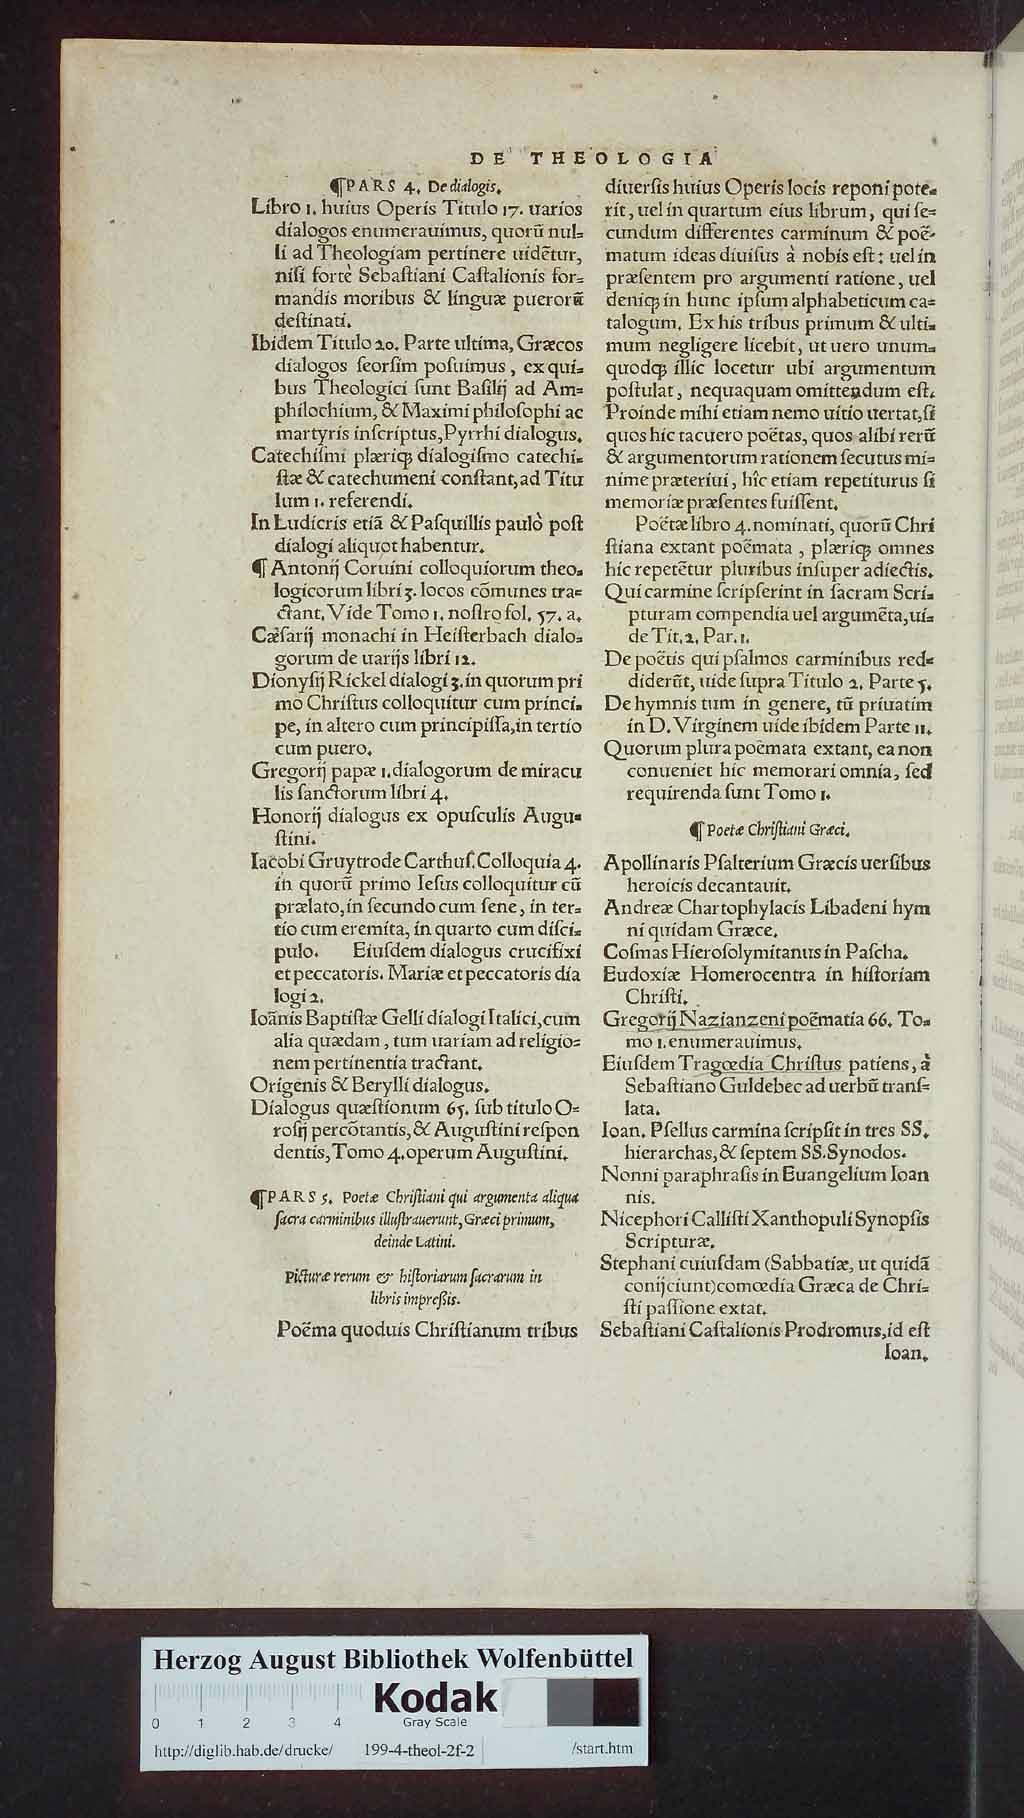 DE THEOLOGIA
¶PARS 4. De dialogis.
Libro 1. huius Operis Titulo 17. uarios
dialogos enumerauimus, quorũ nul=
li ad Theologiam pertinere uidẽtur,
nisi fortè Sebaſtiani Caſtalionis for=
mandis moribus & linguæ puerorũ
deſtinati.
Ibidem Titulo 20. Parte ultima, Græcos
dialogos ſeorſim poſuimus, ex qui=
bus Theologici ſunt Baſilij ad Am=
philochium, & Maximi philoſophi ac
martyris inſcriptus, Pyrrhi dialogus.
Catechiſmi plæriq; dialogiſmo catechi=
ſtæ & catechumeni conſtant, ad Titu
lum 1. referendi.
In Ludicris etiã & Paſquillis paulò poſt
dialogi aliquot habentur.
¶ Antonij Coruini colloquiorum theo=
logicorum libri 3. locos cõmunes tra=
ctant. Vide Tomo 1. noſtro fol. 57. a.
Cæſarij monachi in Heiſterbach dialo=
gorum de uarijs libri 12.
Dionyſij Rickel dialogi 3. in quorum pri
mo Chriſtus colloquitur cum princi=
pe, in altero cum principiſſa, in tertio
cum puero.
Gregorij papæ 1. dialogorum de miracu
lis ſanctorum libri 4.
Honorij dialogus ex opuſculis Augu=
ſtini.
Iacobi Gruytrode Carthuſ. Colloquia 4.
in quorũ primo Ieſus colloquitur cũ
prælato, in ſecundo cum ſene, in ter=
tio cum eremita, in quarto cum diſci=
pulo. Eiuſdem dialogus crucifixi
et peccatoris. Mariæ et peccatoris dia
logi 2.
Ioãnis Baptiſtæ Gelli dialogi Italici, cum
alia quædam, tum uariam ad religio=
nem pertinentia tractant.
Origenis & Berylli dialogus.
Dialogus quæſtionum 65. ſub titulo O=
roſij percõtantis, & Auguſtini reſpon
dentis, Tomo 4. operum Auguſtini.
¶PARS 5. Poetæ Chriſtiani qui argumenta aliqua
ſacra carminibus illuſtrauerunt, Græci primum,
deinde Latini.
Picturæ rerum & hiſtoriarum ſacrarum in
libris impreßis.
Poẽma quoduis Chriſtianum tribus
diuerſis huius Operis locis reponi pote=
rit, uel in quartum eius librum, qui ſe=
cundum differentes carminum & poẽ=
matum ideas diuiſus à nobis eſt: uel in
præſentem pro argumenti ratione, uel
deniq; in hunc ipſum alphabeticum ca=
talogum. Ex his tribus primum & ulti=
mum negligere licebit, ut uero unum=
quodq; illic locetur ubi argumentum
poſtulat, nequaquam omittendum eſt.
Proinde mihi etiam nemo uitio uertat, ſi
quos hic tacuero poẽtas, quos alibi rerũ
& argumentorum rationem ſecutus mi=
nime præteriui, hîc etiam repetiturus ſi
memoriæ præſentes fuiſſent.
Poẽtæ libro 4. nominati, quorũ Chri
ſtiana extant poẽmata, plæriq; omnes
hic repetẽtur pluribus inſuper adiectis.
Qui carmine ſcripſerint in ſacram Scri=
pturam compendia uel argumẽta, ui=
de Tit. 2. Par. 1.
De poẽtis qui pſalmos carminibus red=
diderũt, uide ſupra Titulo 2. Parte 5.
De hymnis tum in genere, tũ priuatim
in D. Virginem uide ibidem Parte 11.
Quorum plura poẽmata extant, ea non
conueniet hic memorari omnia, ſed
requirenda ſunt Tomo 1.
¶ Poetæ Chriſtiani Græci.
Apollinaris Pſalterium Græcis uerſibus
heroicis decantauit.
Andreæ Chartophylacis Libadeni hym
ni quidam Græce.
Coſmas Hieroſolymitanus in Paſcha.
Eudoxiæ Homerocentra in hiſtoriam
Chriſti.
Gregorij Nazianzeni poẽmatia 66. To=
mo 1. enumerauimus.
Eiuſdem Tragœdia Chriſtus patiens, à
Sebaſtiano Guldebec ad uerbũ tranſ=
lata.
Ioan. Pſellus carmina ſcripſit in tres SS.
hierarchas, & ſeptem SS. Synodos.
Nonni paraphraſis in Euangelium Ioan
nis.
Nicephori Calliſti Xanthopuli Synopſis
Scripturæ.
Stephani cuiuſdam (Sabbatiæ, ut quidã
conijciunt) comœdia Græca de Chri=
ſti paſſione extat.
Sebaſtiani Caſtalionis Prodromus, id eſt
Ioan.
Herzog August Bibliothek Wolfenbüttel
Kodak
0 1 2 3 4 Gray Scale
http://diglib.hab.de/drucke/ 199-4-theol-2f-2 /start.htm